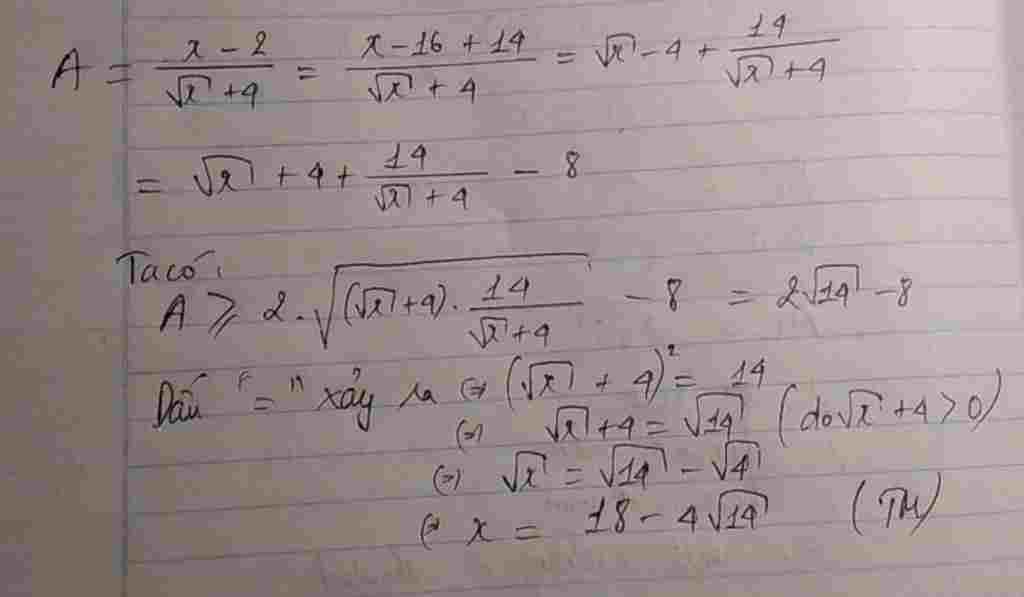 A = \frac{x-2}{\sqrt{x}+4} = \frac{x-16+14}{\sqrt{x}+4} = \sqrt{x} - 4 + \frac{14}{\sqrt{x}+4}
= \sqrt{x} + 4 + \frac{14}{\sqrt{x}+4} - 8
Ta có:
A ≥ 2.\sqrt{(\sqrt{x}+4).\frac{14}{\sqrt{x}+4}} - 8 = 2\sqrt{14} - 8
Dấu "=" xảy ra ⇔ (\sqrt{x} + 4)^2 = 14
⇔ \sqrt{x} + 4 = \sqrt{14} (do \sqrt{x} + 4 > 0)
⇔ \sqrt{x} = \sqrt{14} - \sqrt{4}
⇔ x = 18 - 4\sqrt{14} (TM)